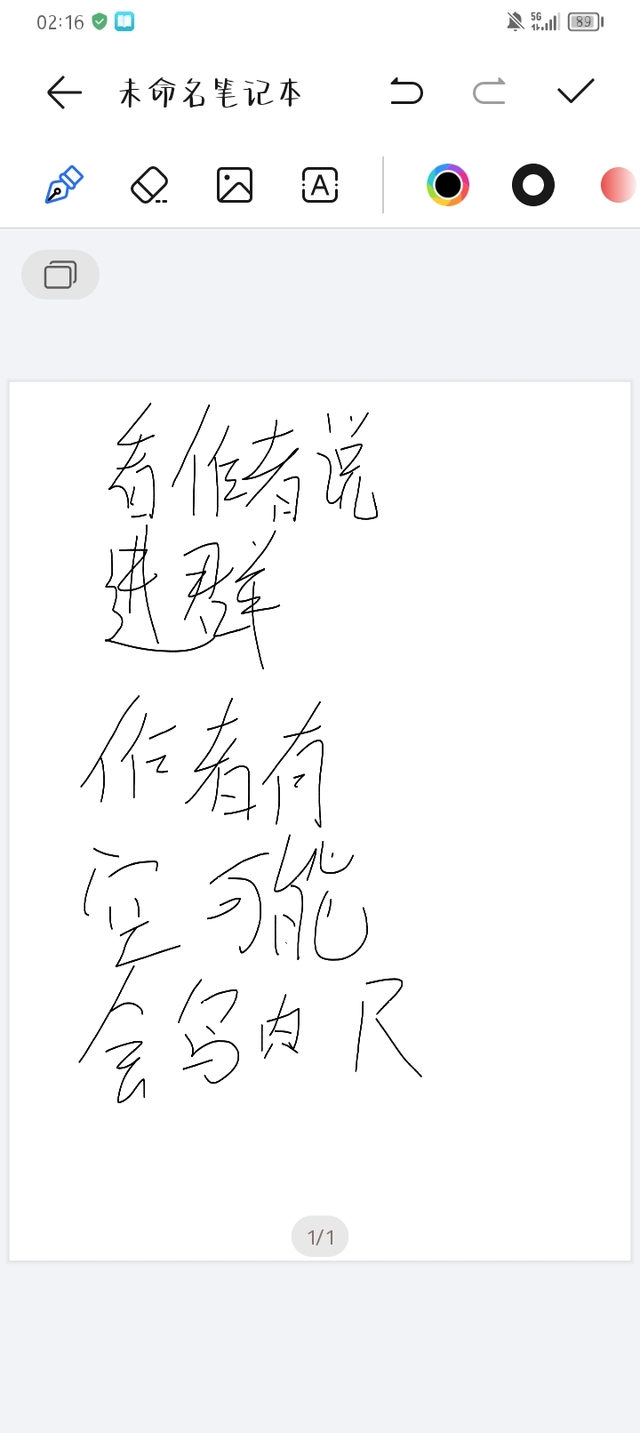 02:16 5G 89
未命名笔记本
A
看作者说
进群
作者有
空可能
会写肉R
1/1